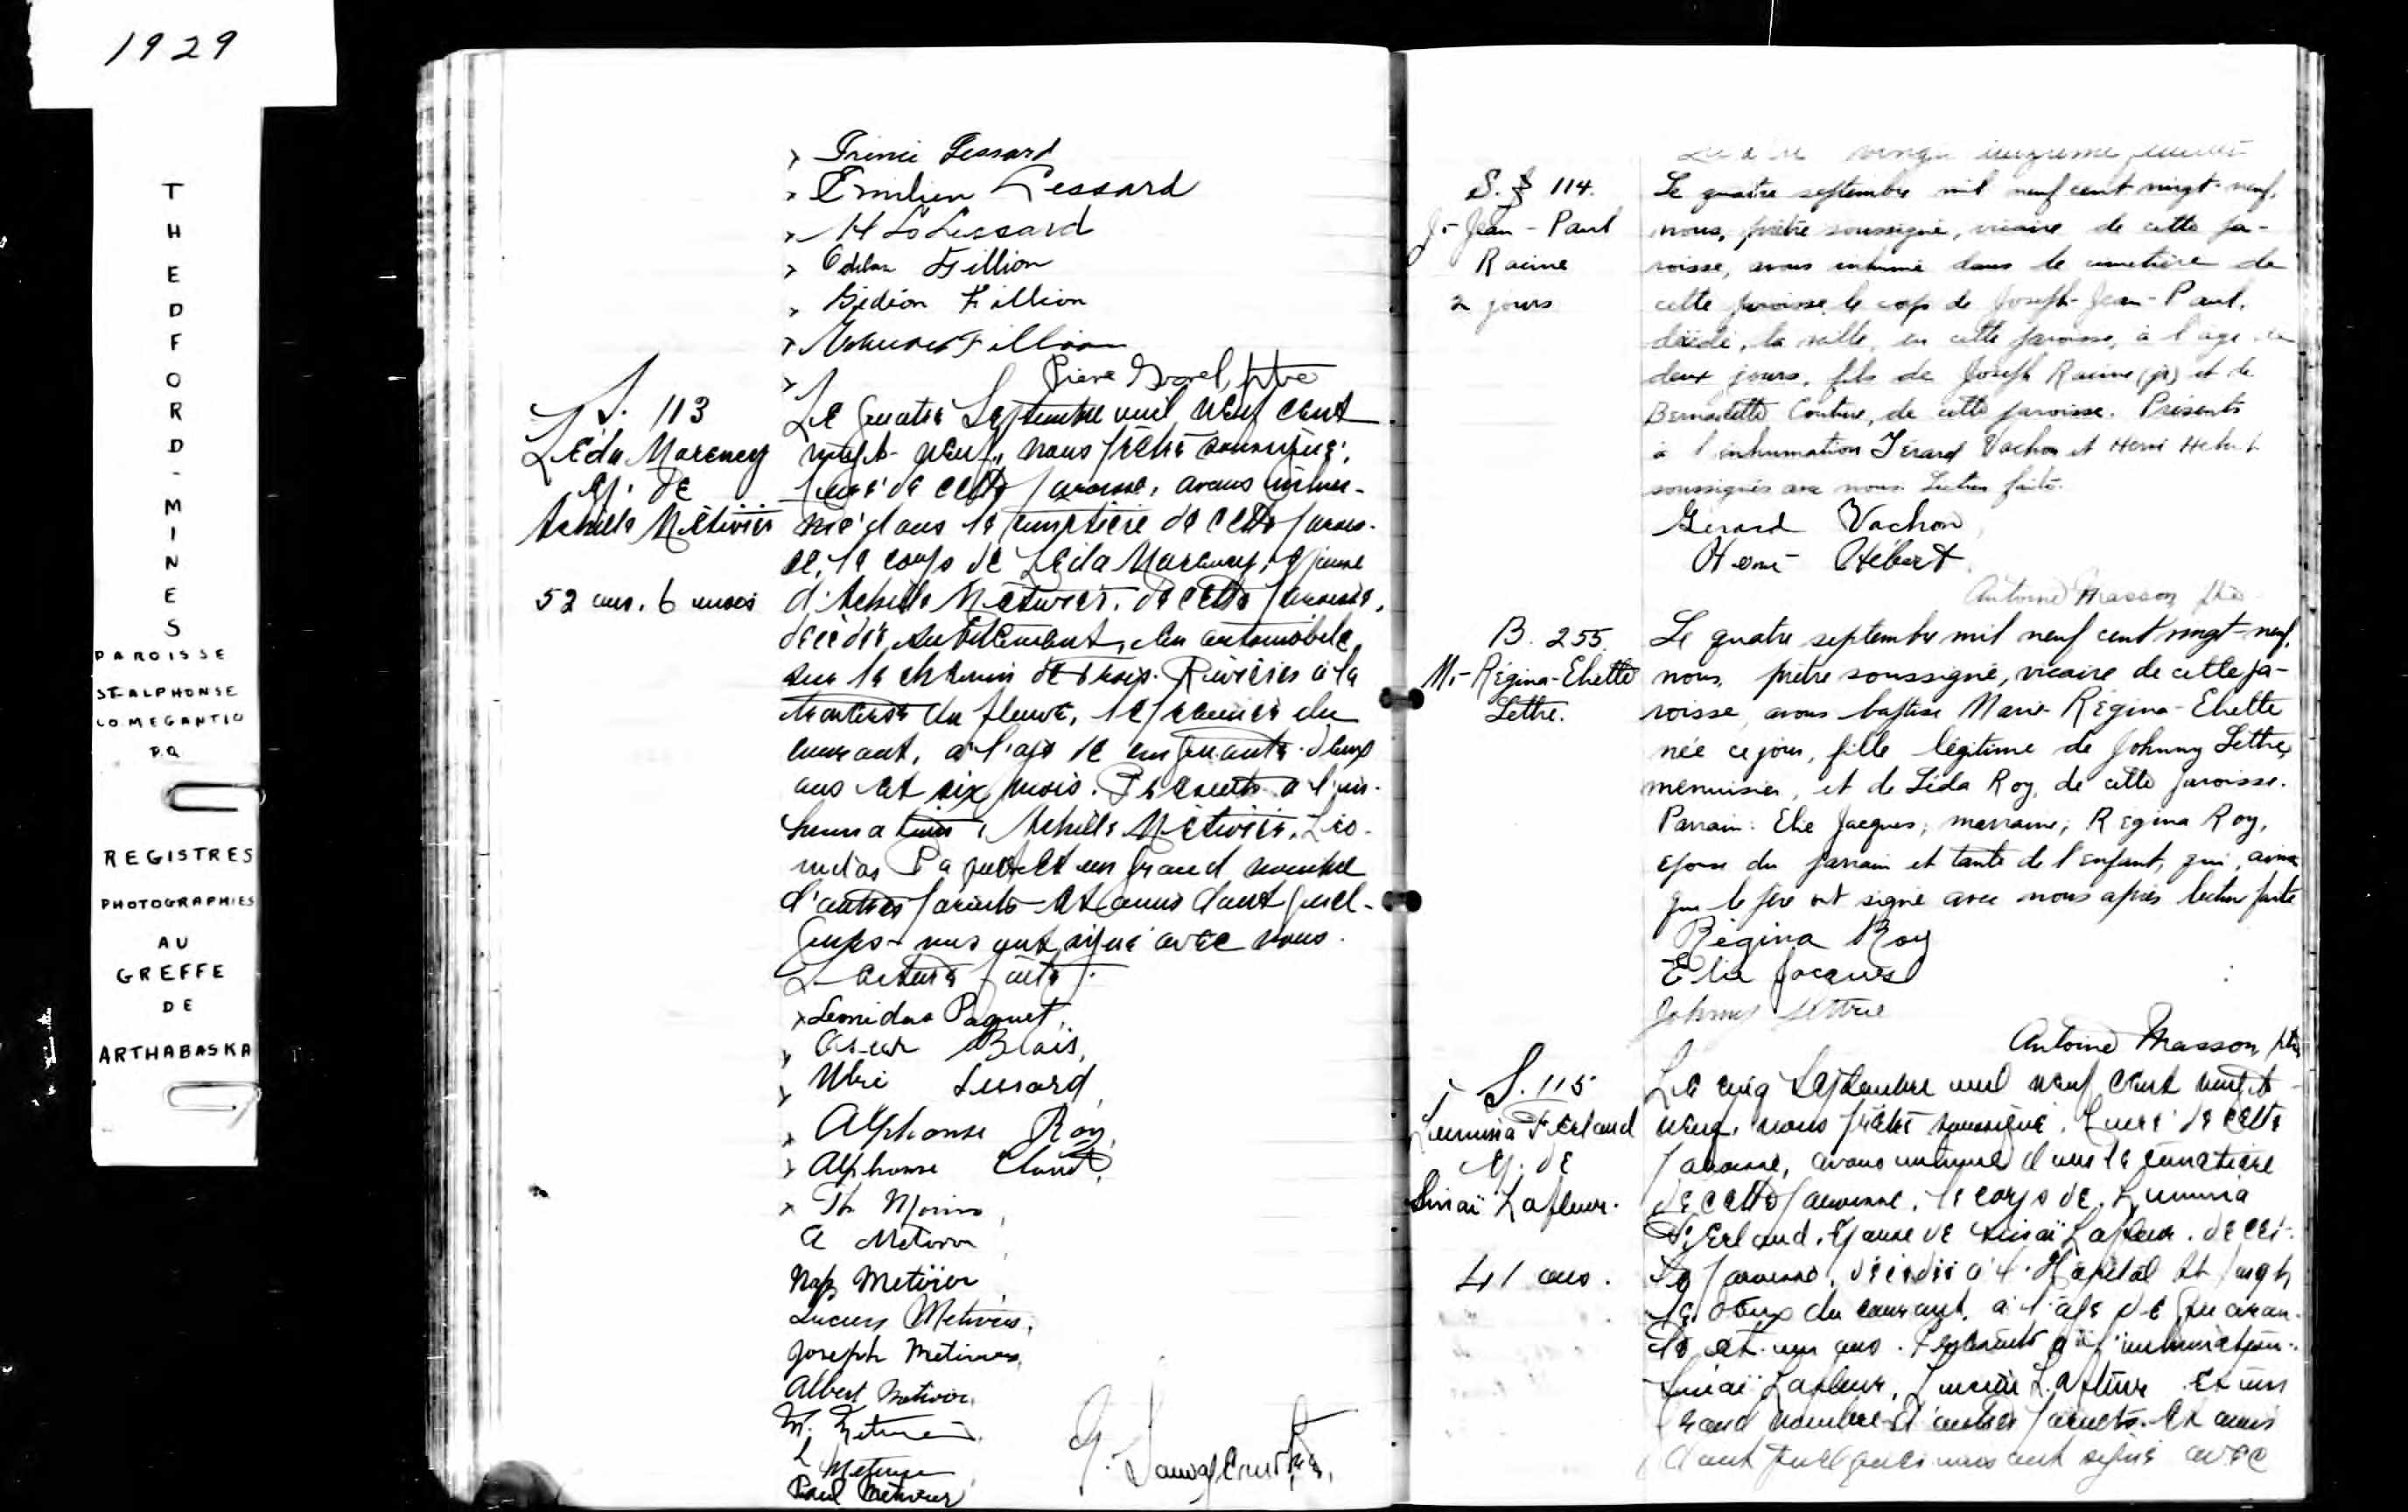 1929
THEDFORD-MINES
PAROISSE
ST-ALPHONSE
CO MEGANTIC
P.Q
REGISTRES
PHOTOGRAPHIES
AU
GREFFE
DE
ARTHABASKA
Lessard
Emilien Lessard
Lessard
Fillion
Gédéon Fillion
Fillion
Pierre ptre
S. 113
Léda Marency
ép. de
Achille Métivier
52 ans. 6 mois
Le quatre Septembre mil neuf cent
vingt-neuf, nous prêtre soussigné,
curé de cette paroisse, avons inhu-
mé dans le cimetière de cette parois-
se, le corps de Léda Marency, épouse
d'Achille Métivier, de cette paroisse,
décédée subitement, en automobile,
sur le chemin de Trois-Rivières à la
traverse du fleuve, le premier du
courant, à l'age de cinquante-deux
ans et six mois. Présents à l'in-
humation, Achille Métivier, Léo-
nidas Paquet et un grand nombre
d'autres parents et amis dont quel-
ques-uns ont signé avec nous.
Lecture faite.
Leonidas Paquet,
Oscar Blais,
Lessard,
Alphonse Roy,
Alphonse
Th Morin,
A Metivier
Nap Metivier
Lucien Metivier,
Joseph Metivier,
Albert Metivier,
L Metivier
Paul Metivier
S. 114.
J.-Jean-Paul
Racine
2 jours
Le quatre septembre mil neuf cent vingt-neuf,
nous, prêtre soussigné, vicaire de cette pa-
roisse, avons inhumé dans le cimetière de
cette paroisse, le corps de Joseph-Jean-Paul,
décédé, la veille, en cette paroisse, à l'age de
deux jours, fils de Joseph Racine (jr) et de
Bernadette Couture, de cette paroisse. Présents
à l'inhumation Gérard Vachon et Henri Hebert
soussignés avec nous. Lecture faite.
Gerard Vachon,
Henri Hébert.
Antoine Masson ptre
B. 255.
M.-Régina-Eliette
Lettre.
Le quatre septembre mil neuf cent vingt-neuf,
nous, prêtre soussigné, vicaire de cette pa-
roisse, avons baptisé Marie-Régina-Eliette
née ce jour, fille légitime de Johnny Lettre,
menuisier, et de Léda Roy, de cette paroisse.
Parrain: Elie Jacques; marraine; Régina Roy,
épouse du parrain et tante de l'enfant, qui, ainsi
que le père ont signé avec nous après lecture faite
Régina Roy
Elie Jacques
Johnny Lettre
Antoine Masson ptre
S. 115
Lumina Ferland
ép. de
Sinaï Lafleur.
41 ans.
Le cinq Septembre mil neuf cent vingt-
neuf, nous prêtre soussigné, curé de cette
paroisse, avons inhumé dans le cimetière
de cette paroisse, le corps de Lumina
Ferland, épouse de Sinaï Lafleur, de cet-
te paroisse, décédée à l'Hôpital St Joseph
le deux du courant, à l'age de quaran-
te et un ans. Présents à l'inhumation:
Sinaï Lafleur, Lafleur et un
grand nombre d'autres parents et amis
dont quelques uns ont signé avec